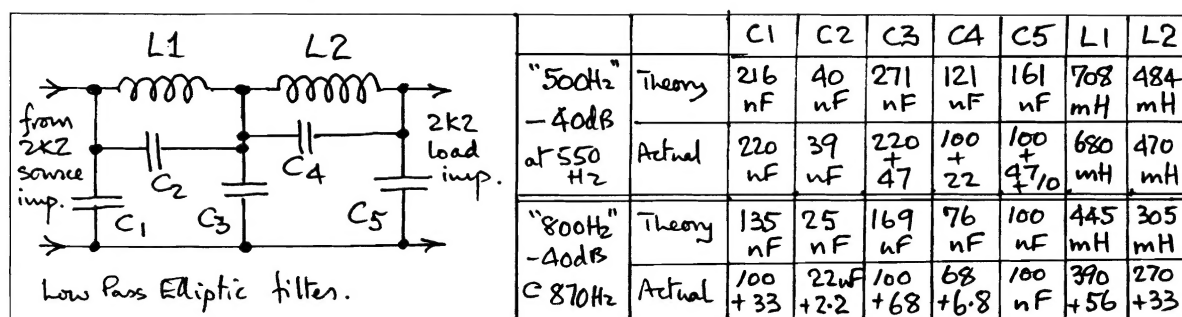 L1 L2
from
2K2
source
imp.
C2
C4
2K2
load
imp.
C1
C3
C5
Low Pass Elliptic filter.
C1 C2 C3 C4 C5 L1 L2
"500Hz"
-40dB
at 550
Hz
Theory
216 nF
40 nF
271 nF
121 nF
161 nF
708 mH
484 mH
Actual
220 nF
39 nF
220 + 47
100 + 22
100 + 47 +10
680 mH
470 mH
"800Hz"
-40dB
@ 870Hz
Theory
135 nF
25 nF
169 nF
76 nF
100 nF
445 mH
305 mH
Actual
100 +33
22nF +2.2
100 +68
68 +6.8
100 nF
390 +56
270 +33